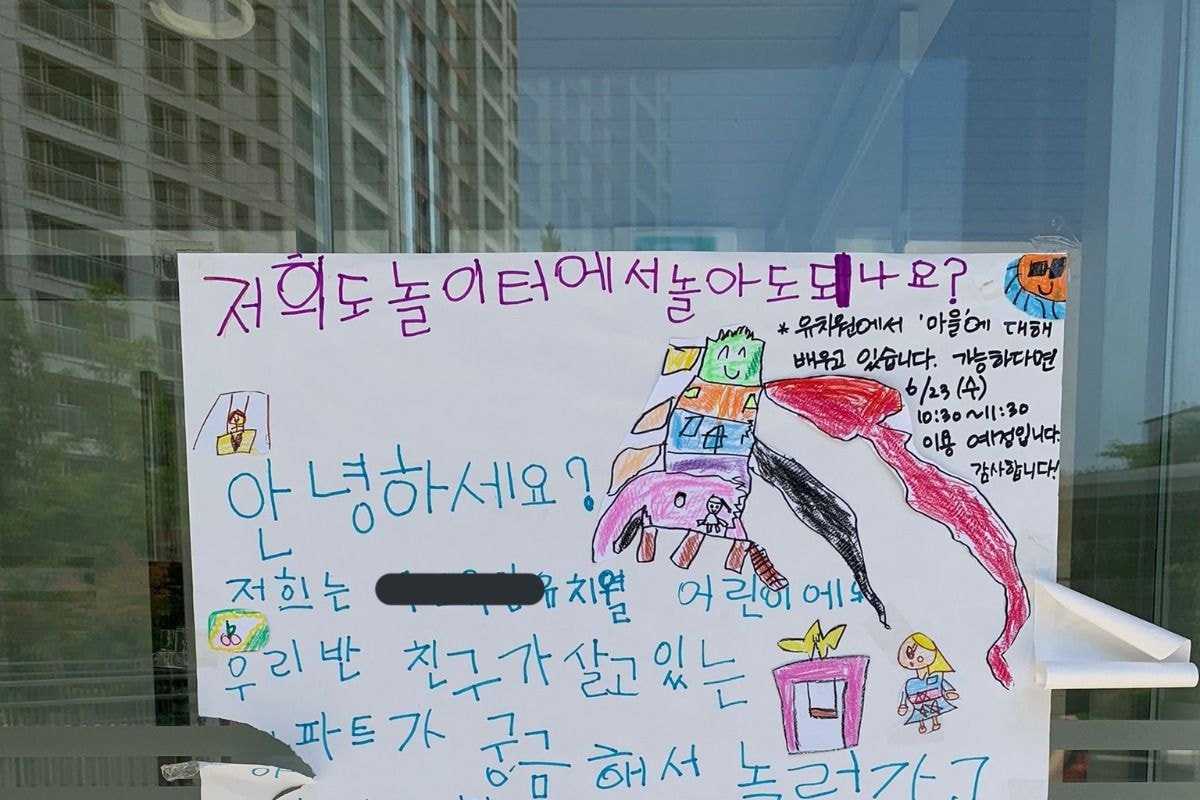 저희도 놀이터에서 놀아도 되나요?
* 유치원에서 '마을'에 대해
배우고 있습니다. 가능하다면
6/23 (수)
10:30~11:30
이용 예정입니다.
감사합니다!
안녕하세요?
저희는 유치원 어린이에요
우리반 친구가 살고 있는
파트가 궁금해서 놀러가고